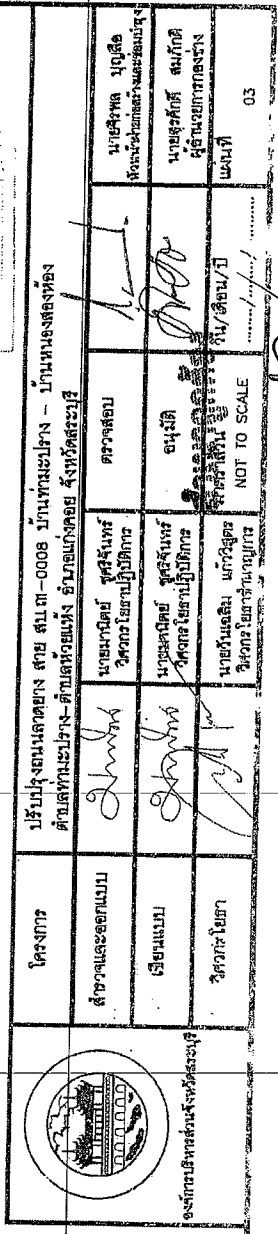 องค์การบริหารส่วนจังหวัดสระบุรี
โครงการ
ปรับปรุงถนนลาดยาง สาย สบ.ถ1-0008 บ้านท่ามะปราง - บ้านหนองสองห้อง
ตำบลท่ามะปราง-ตำบลห้วยแห้ง อำเภอแก่งคอย จังหวัดสระบุรี
สำรวจและออกแบบ
นายมานิตย์ ชูศรีจันทร์
วิศวกรโยธาปฏิบัติการ
ตรวจสอบ
นายจิรพล บุญลือ
หัวหน้าฝ่ายก่อสร้างและซ่อมบำรุง
เขียนแบบ
นายมานิตย์ ชูศรีจันทร์
วิศวกรโยธาปฏิบัติการ
อนุมัติ
นายสุรศักดิ์ สมภักดี
ผู้อำนวยการกองช่าง
วิศวกรโยธา
นายวันเฉลิม แก้ววิสูตร
วิศวกรโยธาชำนาญการ
NOT TO SCALE
วัน/เดือน/ปี
แผ่นที่
03